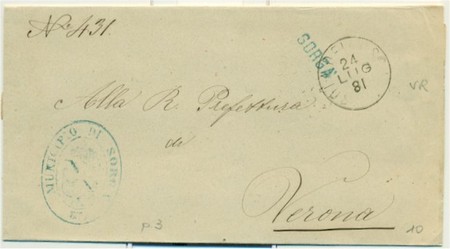 No 431
SORGÀ
24
LUG
81
VR
Alla R. Prefettura
di
MUNICIPIO DI SORGÀ
Verona
P3
10